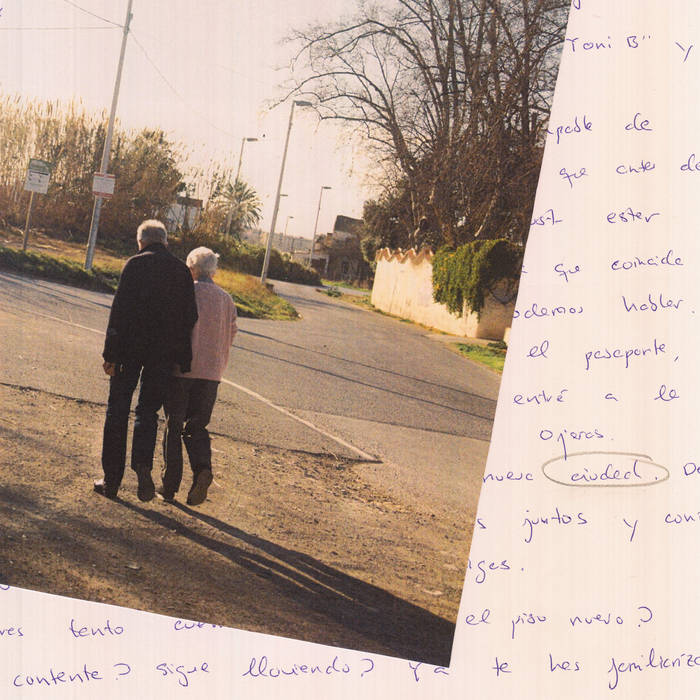 Toni B" y
de
que antes de
estar
que coincide
podemos hablar.
el pasaporte,
entré a la
Ojeras.
nueva ciudad. De
s juntos y con
ges.
el piso nuevo?
res tanto
contenta? sigue lloviendo? Ya te has familiariza